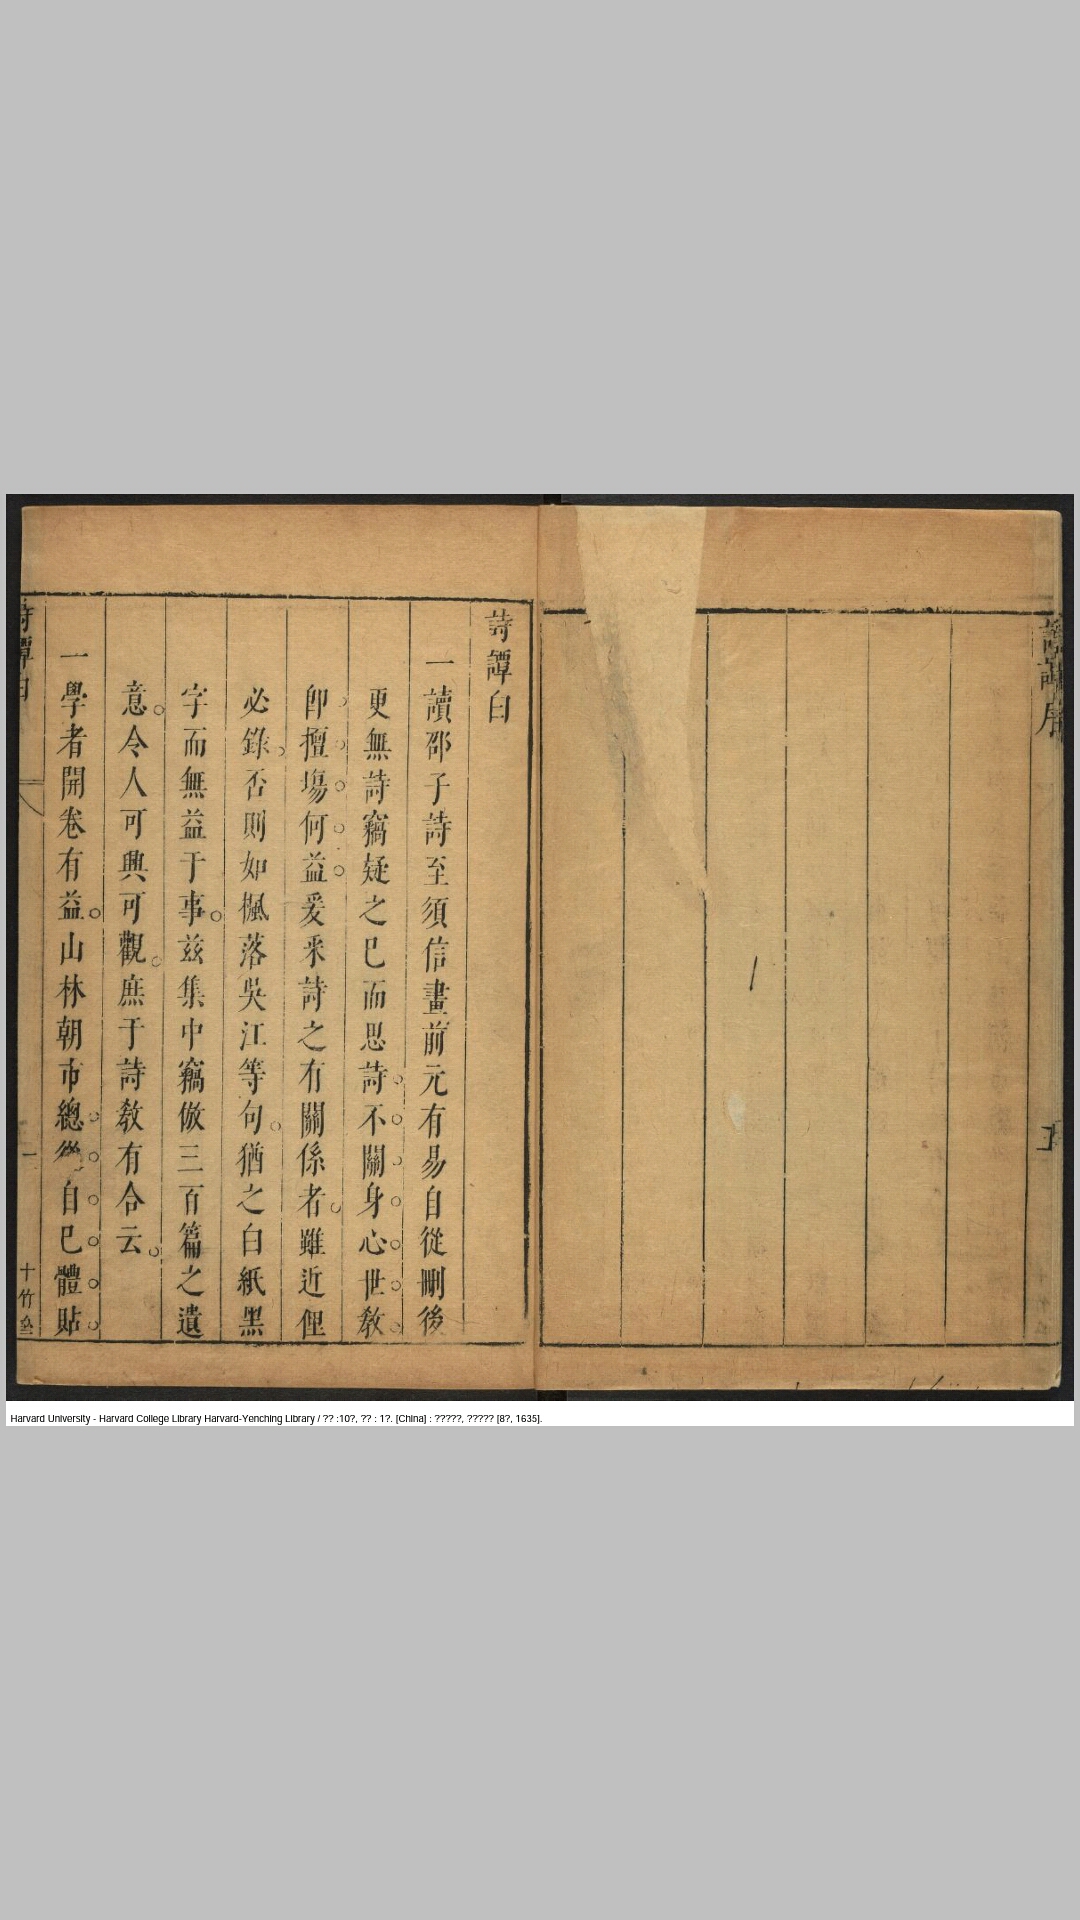 詩譚序
五
詩譚白
一讀邵子詩至須信畫前元有易自從刪後
更無詩竊疑之巳而思詩不關身心世敎
卽擅塲何益爰采詩之有關係者雖近俚
必錄否則如楓落吳江等句猶之白紙黑
字而無益于事玆集中竊倣三百篇之遺
意令人可興可觀庶于詩敎有合云
一學者開卷有益山林朝市總自巳體貼
詩譚白
一
十竹
Harvard University - Harvard College Library Harvard-Yenching Library / ?? :10?, ?? : 1?. [China] : ?????, ????? [8?, 1635].